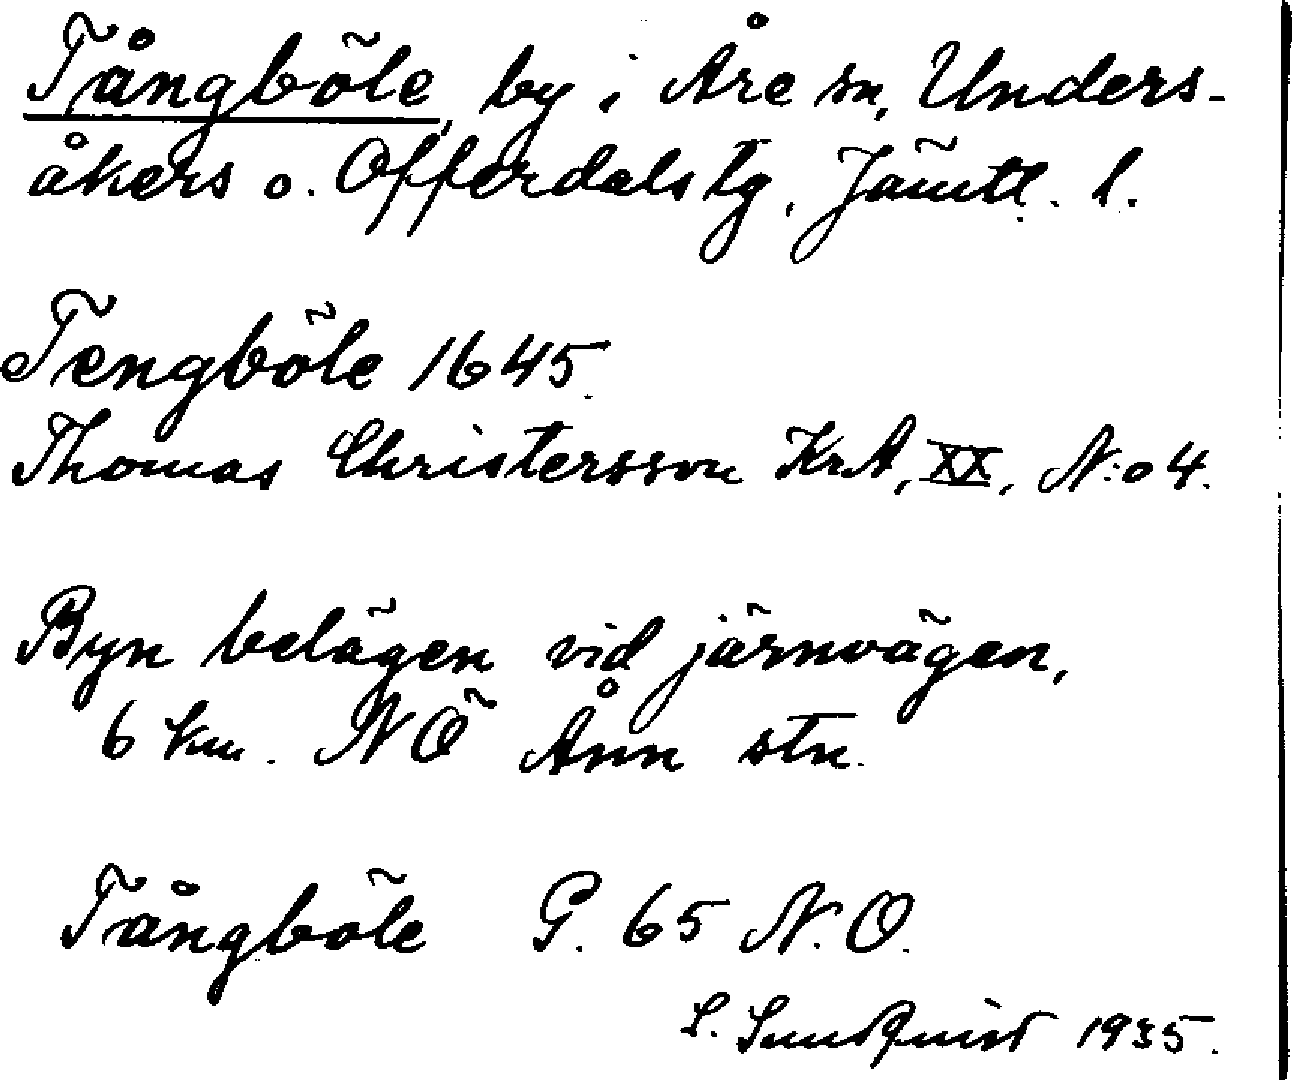 Tångböle, by i Åre sn, Unders-
åkers o. Offerdals tg. Jämtl. l.
Tengböle 1645.
Thomas Christersson KrA, XX, N:o 4.
Byn belägen vid järnvägen,
6 km. NÖ Ånn stn.
Tångböle G. 65 N.O.
S. Sundquist 1935.